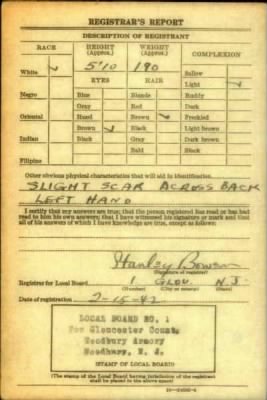 REGISTRAR'S REPORT
DESCRIPTION OF REGISTRANT
RACE HEIGHT (Approx.) WEIGHT (Approx.) COMPLEXION
5'10 190 Sallow
White ✓ EYES HAIR Light ✓
Ruddy
Negro Blue Blonde Dark
Gray Red Freckled
Oriental Hazel Brown ✓ Light brown
Brown ✓ Black Dark brown
Indian Black Gray Black
Bald
Filipino
Other obvious physical characteristics that will aid in identification
SLIGHT SCAR ACROSS BACK
LEFT HAND
I certify that my answers are true; that the person registered has read or has had
read to him his own answers; that I have witnessed his signature or mark and that
all of his answers of which I have knowledge are true, except as follows:
(Signature of registrar)
Registrar for Local Board 1 GLOU. N.J.
(Number) (City or county) (State)
Date of registration 2-15-42
LOCAL BOARD NO. 1
For Gloucester County
Woodbury Armory
Woodbury, N. J.
STAMP OF LOCAL BOARD
(The stamp of the Local Board having jurisdiction of the registrant
shall be placed in the above space)